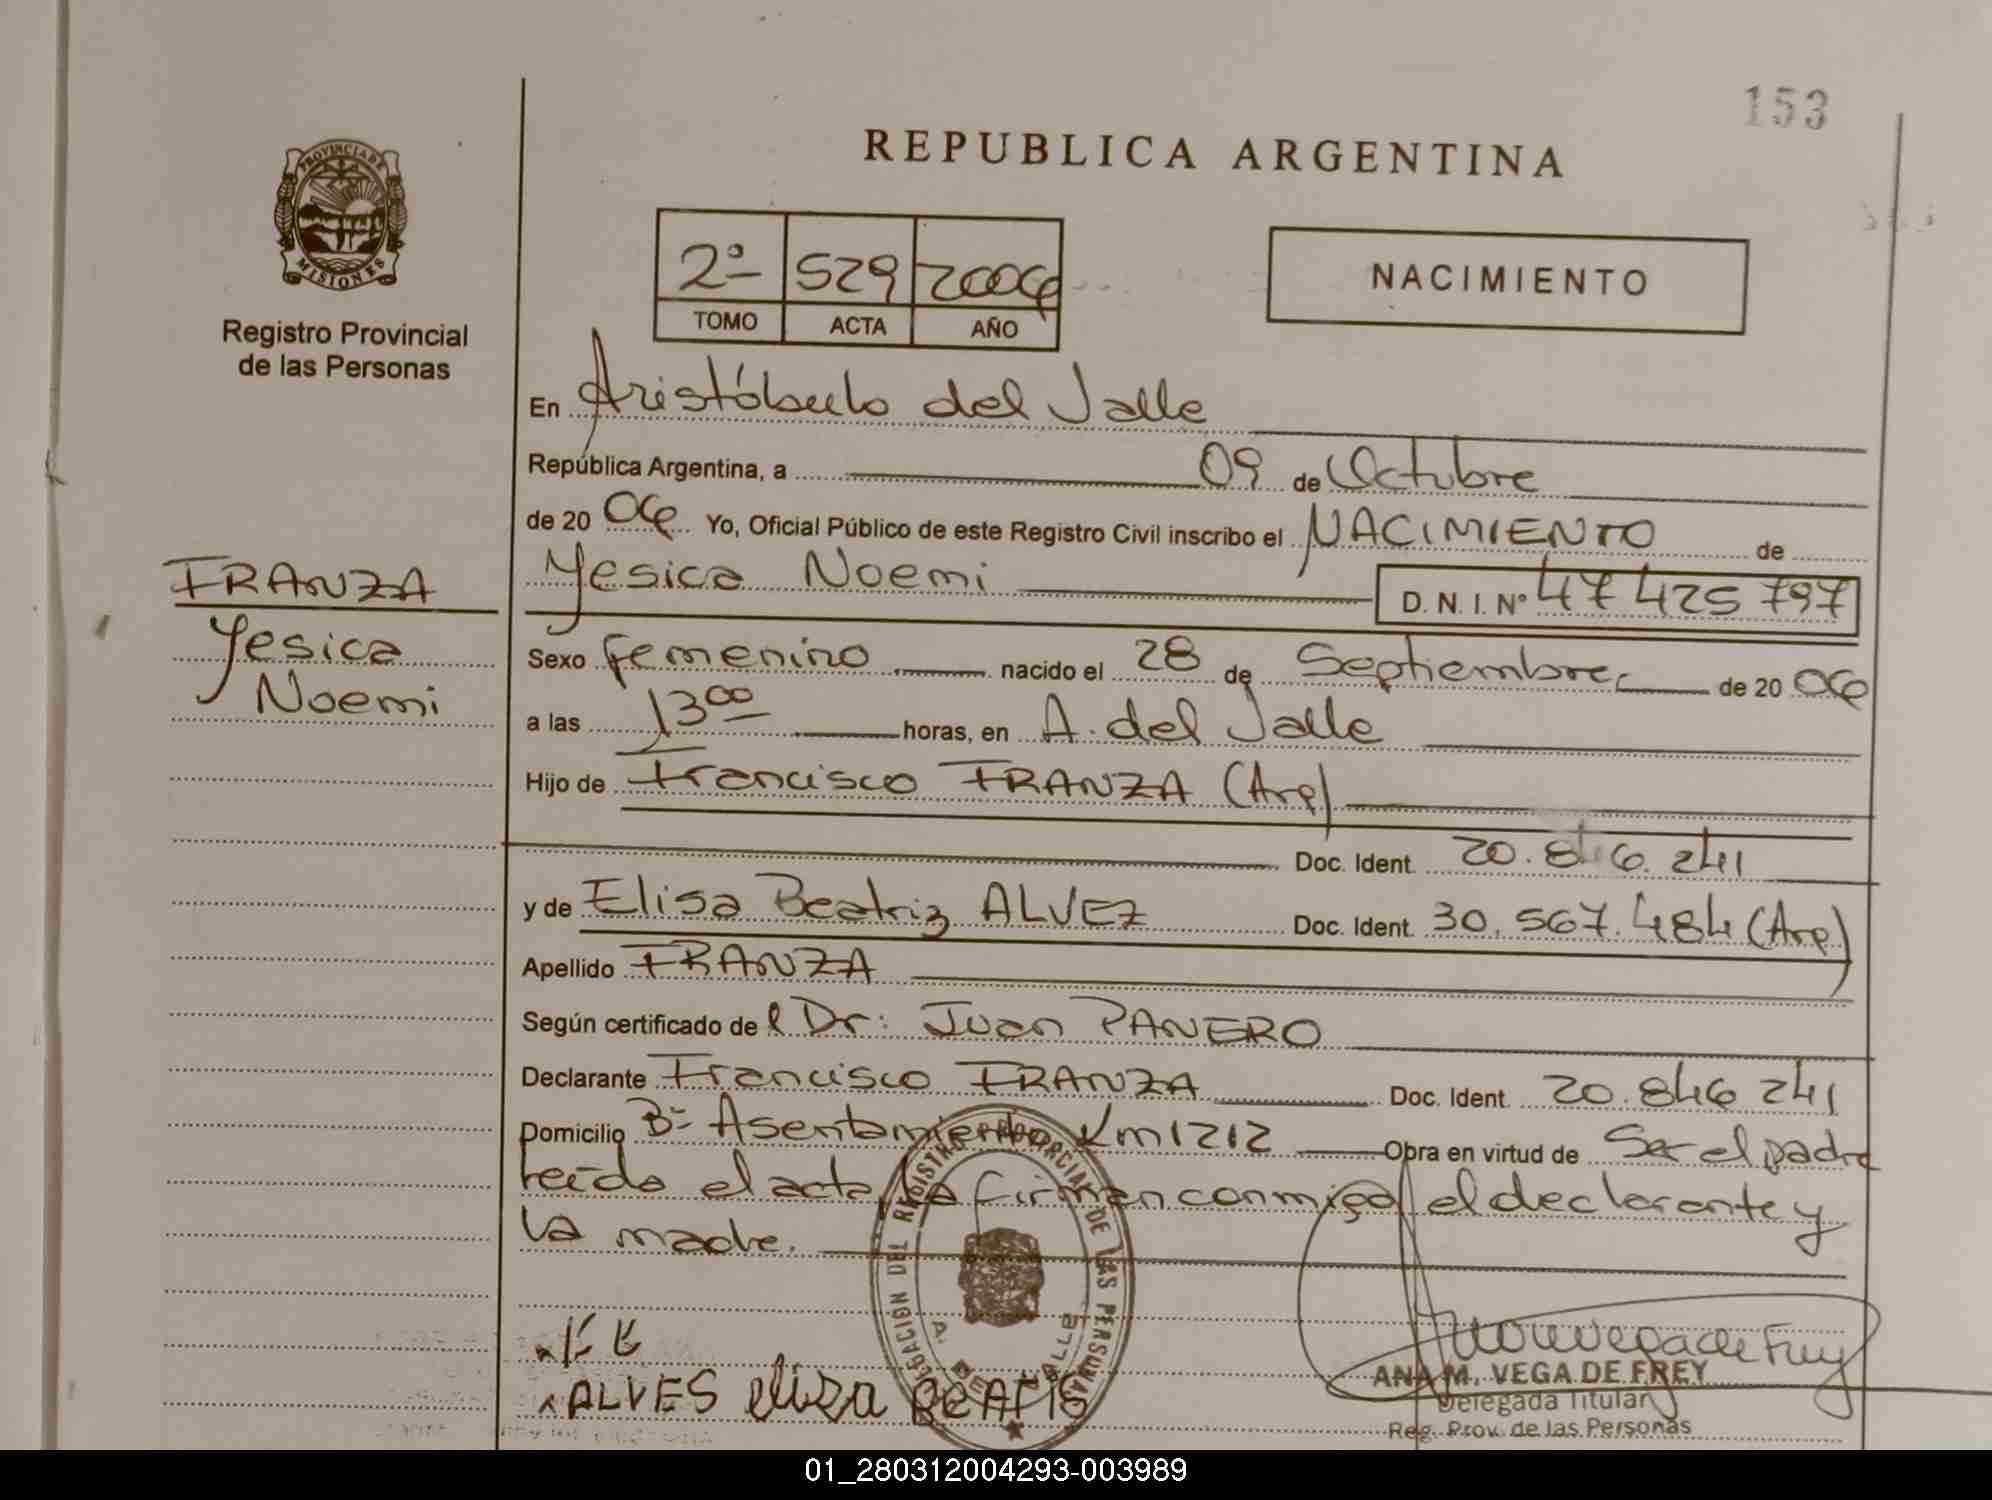 153
REPUBLICA ARGENTINA
PROVINCIA DE
MISIONES
Registro Provincial
de las Personas
2º 529 2006
TOMO ACTA AÑO
NACIMIENTO
En Aristóbulo del Valle
República Argentina, a 09 de Octubre
de 20 06 Yo, Oficial Público de este Registro Civil inscribo el NACIMIENTO de
Yesica Noemi D. N. I. Nº 47 425 797
FRANZA
Yesica
Noemi
Sexo femenino nacido el 28 de Septiembre de 20 06
a las 13 00 horas, en A. del Valle
Hijo de Francisco FRANZA (Arg)
Doc. Ident. 20.846.241
y de Elisa Beatriz ALVEZ Doc. Ident. 30.567.484 (Arg)
Apellido FRANZA
Según certificado del Dr: Juan PANERO
Declarante Francisco FRANZA Doc. Ident. 20.846 241
Domicilio Bº Asentamiento Km 1212 Obra en virtud de Ser el padre
leída el acta, la firman conmigo el declarante y
la madre.
DELEGACION DEL REGISTRO PROVINCIAL DE LAS PERSONAS
A. DEL VALLE
ALVES eliza BeATIS
ANA M. VEGA DE FREY
Delegada Titular
Reg. Prov. de las Personas
01_280312004293-003989